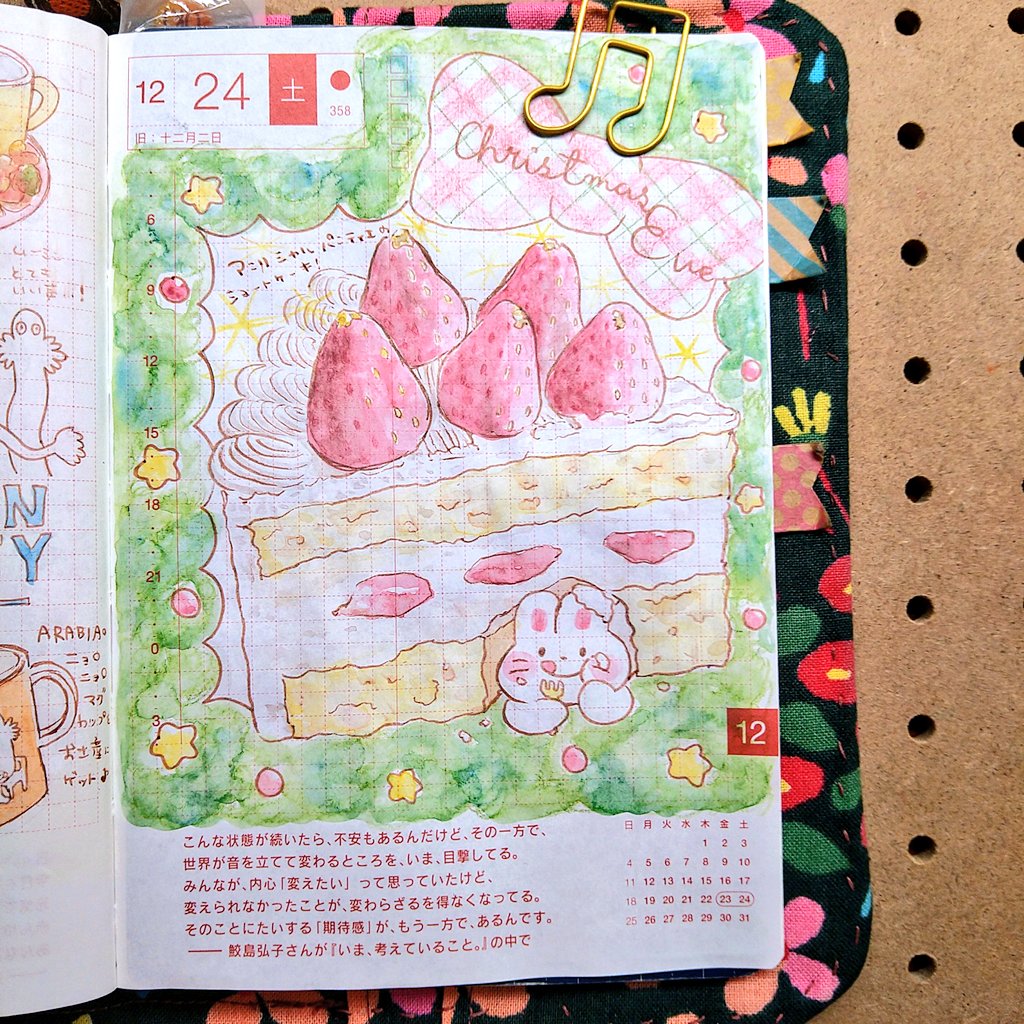 12 24 土
358
旧：十二月二日
Christmas
Eve
アンリ・シャルパンティエの
ショートケーキ！
6
9
12
15
18
21
0
3
12
N
Y
ARABIA。
ニョロ
ニョロ
マグ
カップ
お土産に
ゲット♪
こんな状態が続いたら、不安もあるんだけど、その一方で、
世界が音を立てて変わるところを、いま、目撃してる。
みんなが、内心「変えたい」って思っていたけど、
変えられなかったことが、変わらざるを得なくなってる。
そのことにたいする「期待感」が、もう一方で、あるんです。
── 鮫島弘子さんが『いま、考えていること。』の中で
日 月 火 水 木 金 土
1 2 3
4 5 6 7 8 9 10
11 12 13 14 15 16 17
18 19 20 21 22 23 24
25 26 27 28 29 30 31